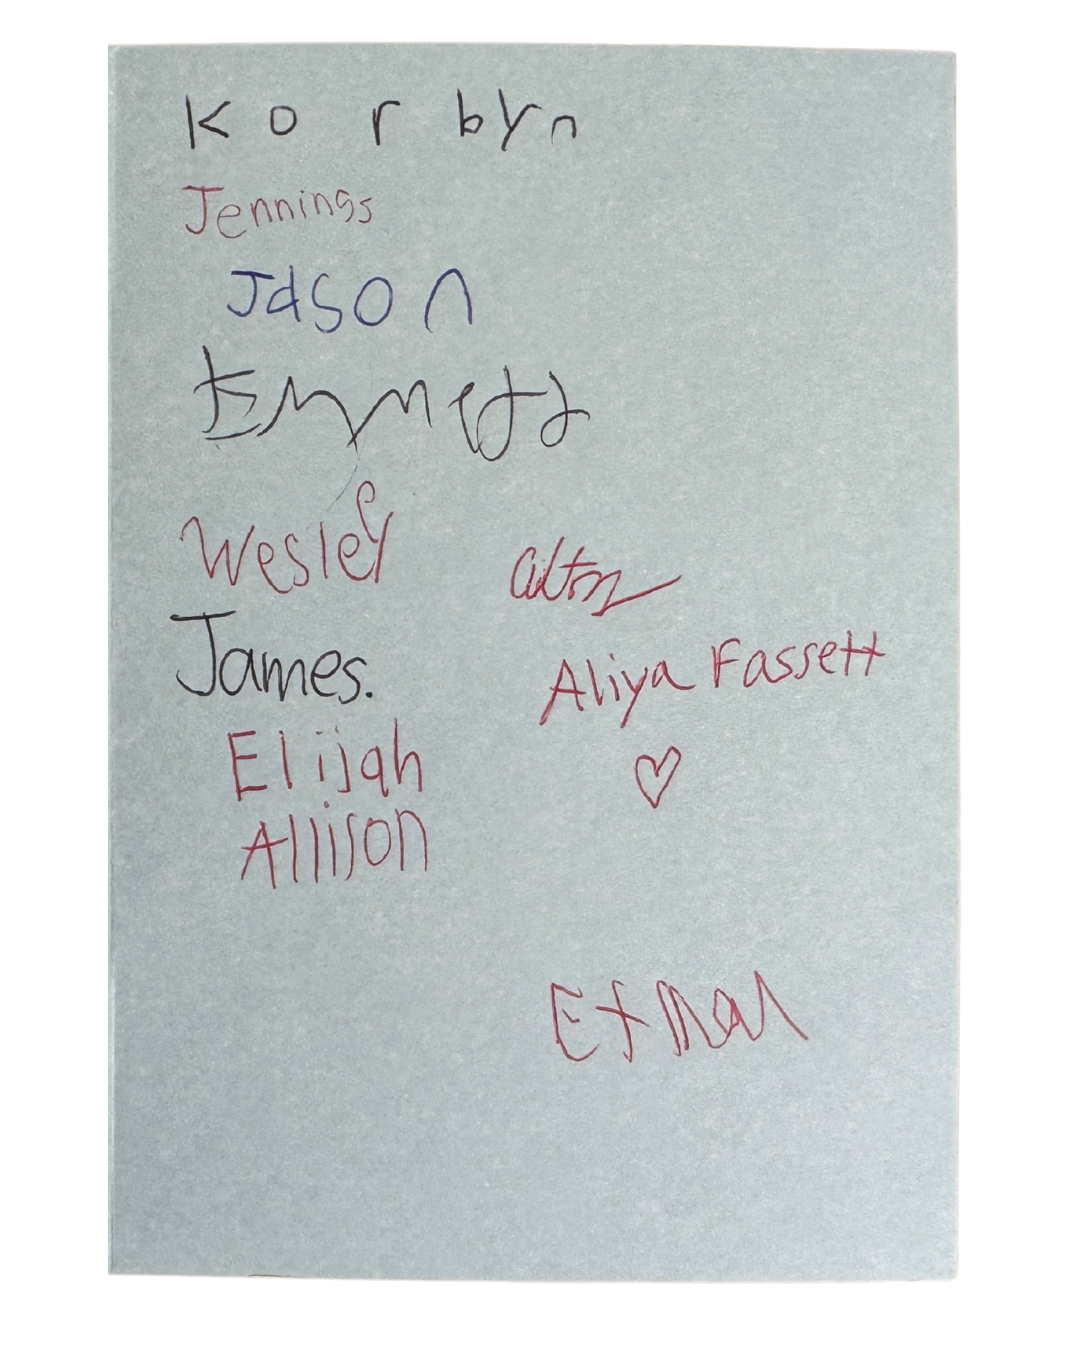 Korbyn
Jennings
Jason
Emmett
Wesley
Alton
James.
Aliya Fassett
Elijah
Allison